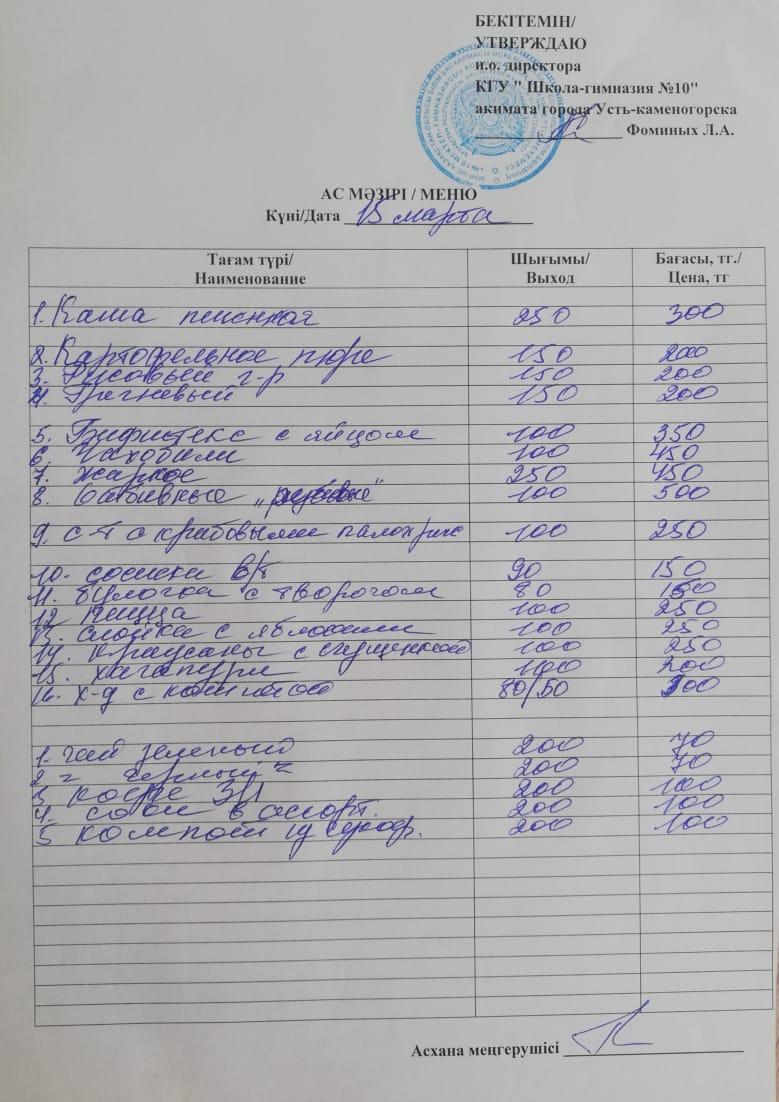 БЕКІТЕМІН/
УТВЕРЖДАЮ
и.о. директора
КГУ " Школа-гимназия №10"
акимата города Усть-каменогорска
Фоминых Л.А.
АС МӘЗІРІ / МЕНЮ
Күні/Дата 15 марта
Тағам түрі/ Шығымы/ Бағасы, тг./
Наименование Выход Цена, тг
1. Каша пшенная 250 300
2. Картофельное пюре 150 200
3. Рисовый г-р 150 200
4. Гречневый 150 200
5. Бифштекс с яйцом 100 350
6. Чахобили 100 450
7. Жаркое 250 450
8. 100 500
9. с-т с крабовыми палочками 100 250
10. сосиски в/т 90 150
11. булочка с творогом 80 150
12. пицца 100 250
13. слойка с яблоками 100 250
14. круасаны с сгущенкой 100 250
15. хачапури 100 200
16. х-д с 80/50
1. чай зеленый 200 70
2. ч черный 200 70
3. кофе 3/1 200 100
4. соки в ассорт. 200 100
5. компот 200 100
Асхана меңгерушісі